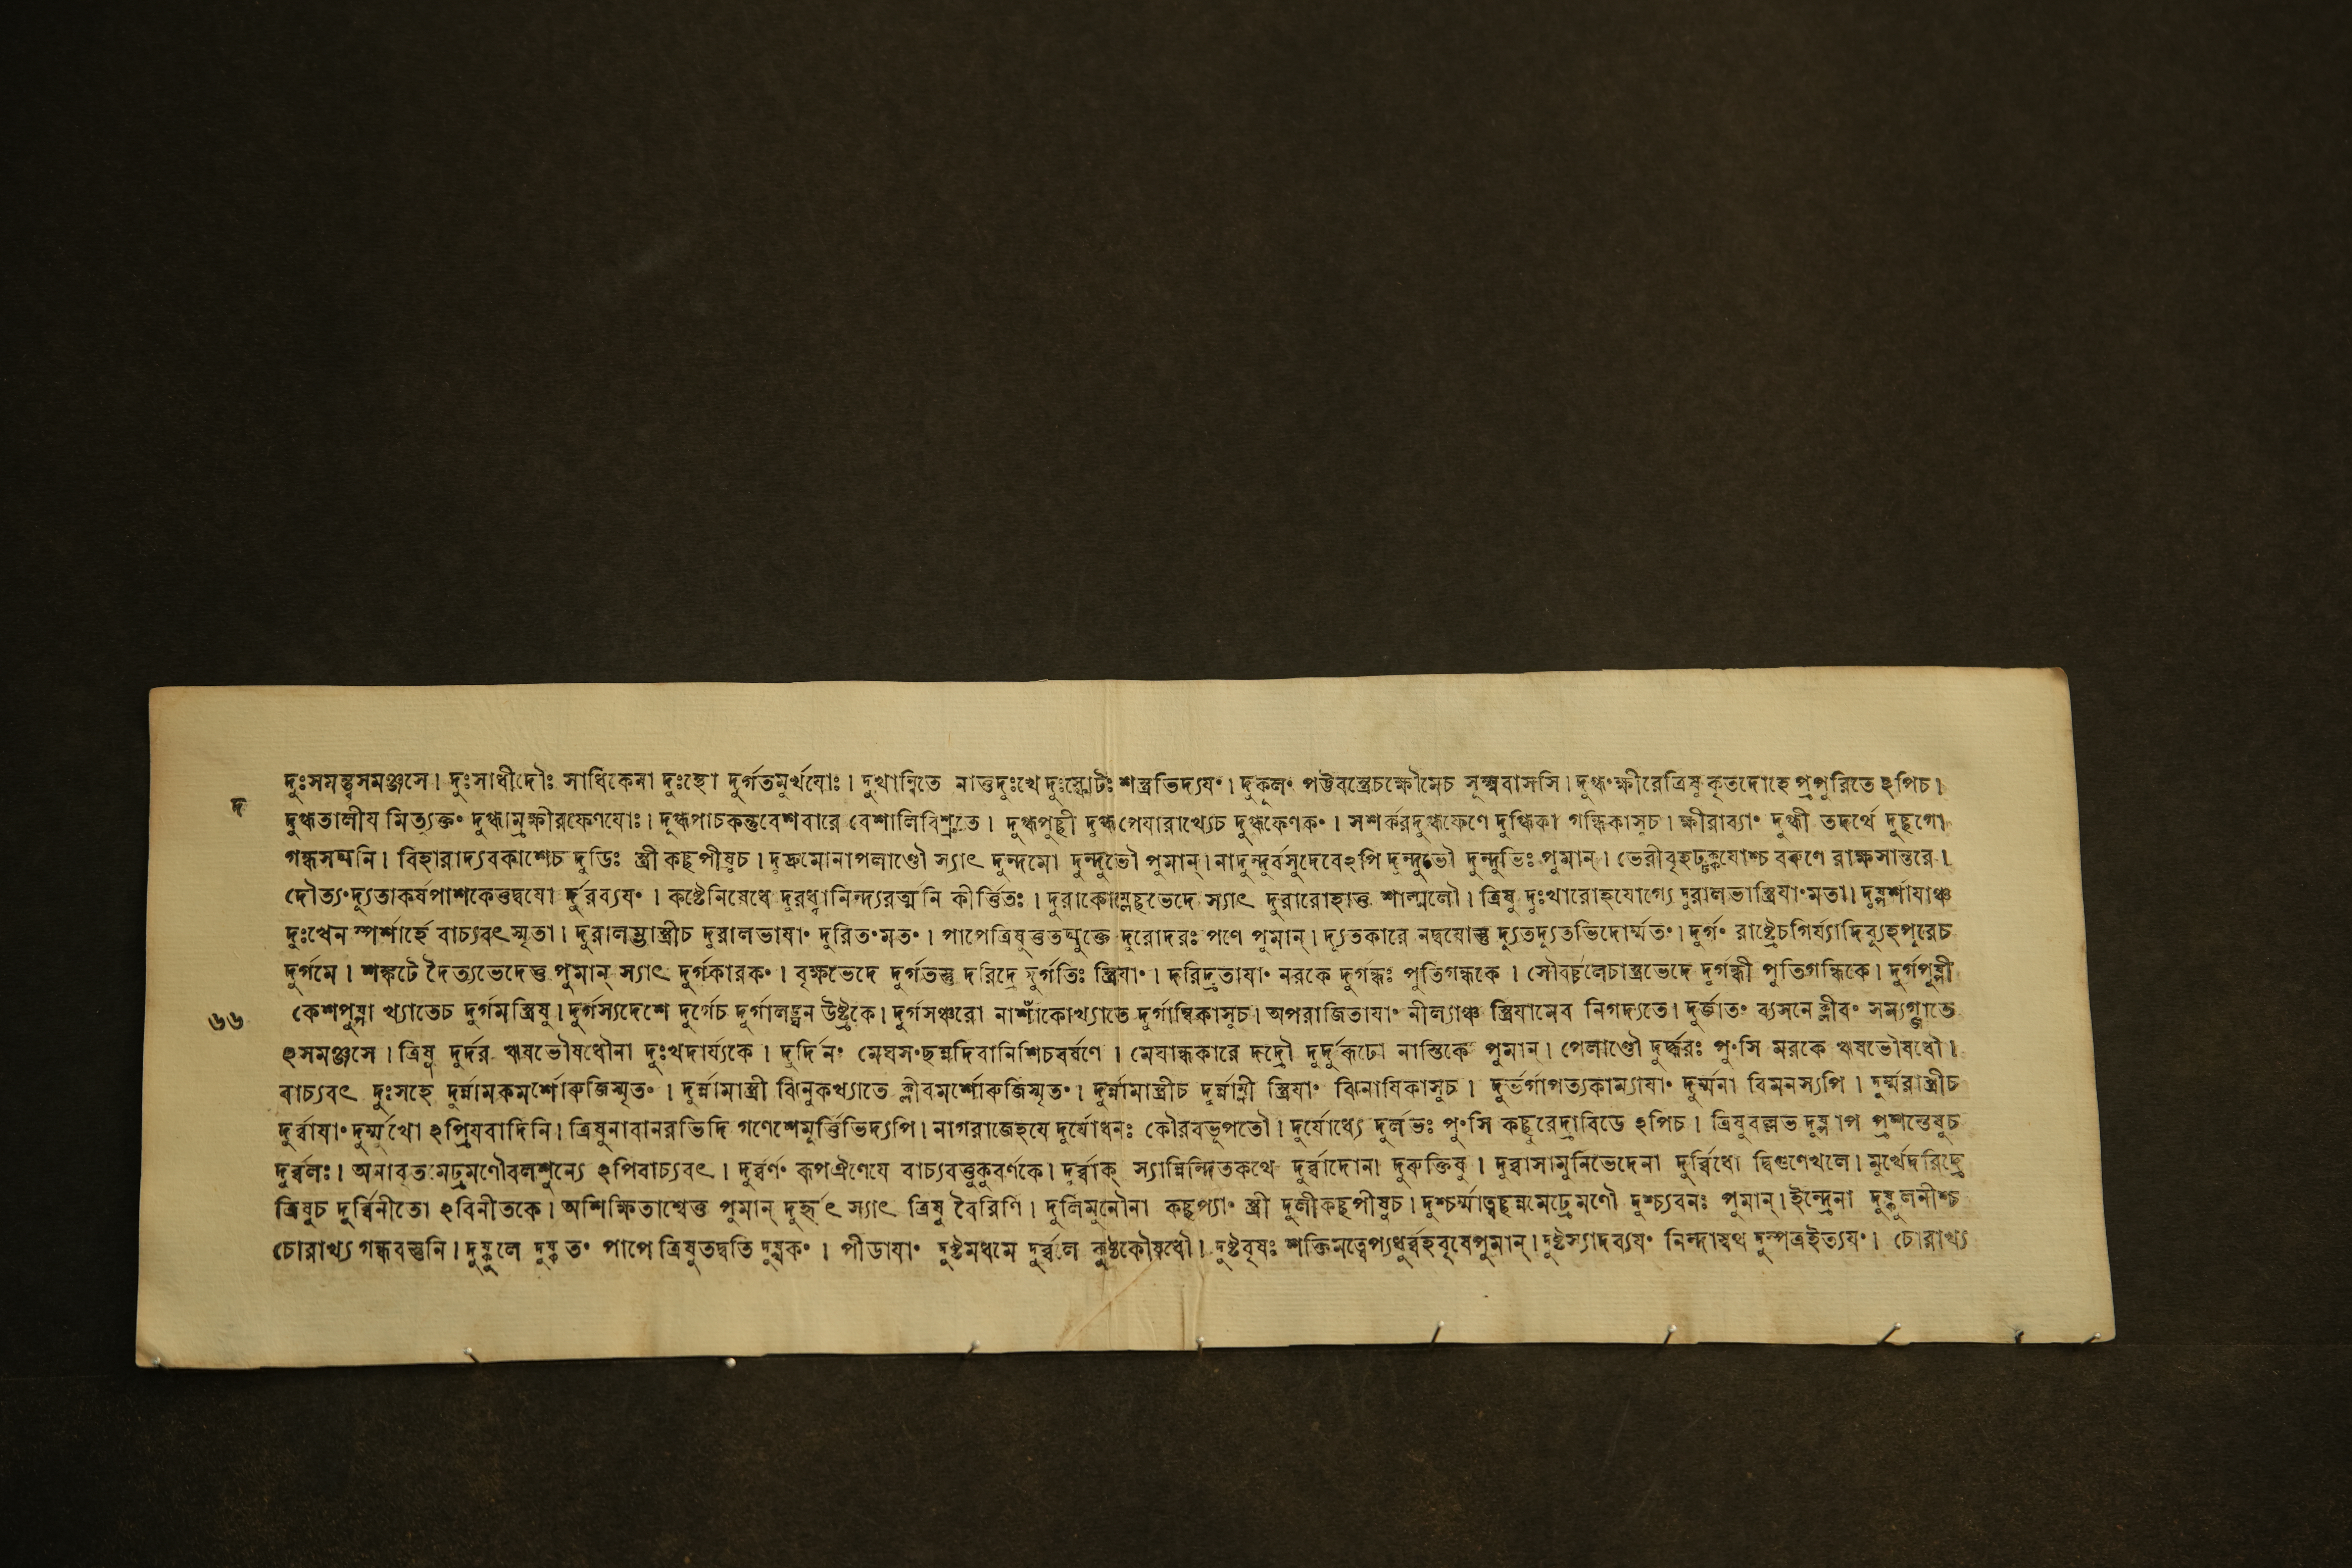 দুঃসমন্ত্বসমঞ্জসে। দুঃসাধীদৌঃ সাধিকেনা দুঃস্থো দুর্গতমুর্খযোঃ। দুখান্বিতে নাত্তদুঃখে দুঃস্ফোটঃ শস্ত্রভিদ্যয॰। দুকূল॰ পট্টবস্ত্রেচক্ষৌমেচ সূক্ষ্মবাসসি। দুগ্ধ॰ক্ষীরেত্রিষু কৃতদোহে প্রপুরিতে ঽপিচ।
দ
দুগ্ধতালীয মিত্যুক্ত॰ দুগ্ধাম্রক্ষীরফেণযোঃ। দুগ্ধপাচকন্তুবেশবারে বেশালিবিশ্রুতে। দুগ্ধপুচ্ছী দুগ্ধপেযারাখ্যেচ দুগ্ধফেণক॰। সশর্করদুগ্ধফেণে দুগ্ধিকা গন্ধিকাসুচ। ক্ষীরাব্যা॰ দুগ্ধী তদর্থে দুচ্ছগো
গন্ধসদ্মনি। বিহারাদ্যবকাশেচ দুডিঃ স্ত্রী কচ্ছপীষুচ। দুদ্রুমোনাপলাণ্ডৌ স্যাৎ দুন্দমো দুন্দুভৌ পুমান্। নাদুন্দুর্বসুদেবেঽপি দুন্দুভৌ দুন্দুভিঃ পুমান্। ভেরীবৃহঢ্ঢক্কযোশ্চ বরুণে রাক্ষসান্তরে।
দৌত্য॰দ্যুতাকর্ষপাশকেত্তদ্বযো র্দুরব্যয॰। কষ্টেনিষেধে দুরধ্বানিন্দ্যরত্মনি কীর্ত্তিতঃ। দুরাকোম্লেচ্ছভেদে স্যাৎ দুরারোহাত্ত শাল্মলৌ। ত্রিষু দুঃখারোহযোগ্যে দুরালভাস্ত্রিযা॰মতা। দুস্পর্শাযাঞ্চ
দুঃখেন স্পর্শার্হে বাচ্যবৎস্মৃতা। দুরালম্ভাস্ত্রীচ দুরালভাযা॰ দুরিত॰মত॰। পাপেত্রিষুত্ততদ্যুক্তে দুরোদরঃ পণে পুমান্। দ্যূতকারে নদ্বযোস্তু দ্যুতদ্যুতভিদোর্ম্মত॰। দুর্গ॰ রাষ্ট্রেচগির্য্যাদিব্যুহপুরেচ
দুর্গমে। শঙ্কটে দৈত্যভেদেত্তু পুমান্ স্যাৎ দুর্গকারক॰। বৃক্ষভেদে দুর্গতস্তু দরিদ্রে দুর্গতিঃ স্ত্রিযা॰। দরিদ্রতাযা॰ নরকে দুর্গন্ধঃ পুতিগন্ধকে। সৌবর্চ্চলেচাম্রভেদে দুর্গন্ধী পুতিগন্ধিকে। দুর্গপুষ্পী
৬৬
কেশপুষ্পা খ্যাতেচ দুর্গমস্ত্রিষু। দুর্গস্যদেশে দুর্গেচ দুর্গালঙ্ঘন উষ্ট্রকে। দুর্গসঞ্চরো নাশাঁকোখ্যাতে দুর্গাম্বিকাসুচ। অপরাজিতাযা॰ নীল্যাঞ্চ স্ত্রিযামেব নিগদ্যতে। দুর্জাত॰ ব্যসনে ক্লীব॰ সম্যগ্জাতে
ঽসমঞ্জসে। ত্রিষু দুর্দর ঋষভৌষধৌনা দুঃখদার্য্যকে। দুর্দিন॰ মেঘস॰ছন্নদিবানিশিচবর্ষণে। মেঘান্ধকারে দদ্রৌ দুর্দুরূঢো নাস্তিকে পুমান্। পেলাণ্ডৌ দুর্দ্ধরঃ পু॰সি মরকে ঋষভৌষধৌ।
বাচ্যবৎ দুঃসহে দুর্ন্নামকমর্শোরুজিস্মৃত॰। দুর্ন্নামাস্ত্রী ঝিনুকখ্যাতে ক্লীবমর্শোরুজিস্মৃত॰। দুর্ন্নামাস্ত্রীচ দুর্ন্নাম্নী স্ত্রিযা॰ ঝিনাযিকাসুচ। দুর্ভর্গাপত্যকাম্যাযা॰ দুর্ম্মনা বিমনস্যপি। দুর্ম্মরাস্ত্রীচ
দুর্ব্বাযা॰ দুর্ম্মুখো ঽপ্রিযবাদিনি। ত্রিষুনাবানরভিদি গণেশেমুর্ত্তিভিদ্যপি। নাগরাজেহযে দুর্যোধনঃ কৌরবভূপতৌ। দুর্যোধ্যে দুর্লভঃ পু॰সি কচ্ছুরেদ্রাবিডে ঽপিচ। ত্রিষুবল্লভ দুস্প্রাপ প্রশস্তেষুচ
দুর্ব্বলঃ। অনাবৃতমেঢ্রমণৌবলশুন্যে ঽপিবাচ্যবৎ। দুর্ব্বর্ণ॰ রূপ্যঐণেযে বাচ্যবত্তুকুবর্ণকে। দুর্ব্বাক্ স্যান্নিন্দিতকথে দুর্ব্বাদোনা দুরুক্তিষু। দুর্ব্বাসামুনিভেদেনা দুর্ব্বিধো দ্বিগুণেখলে। মুর্খেদরিদ্রে
ত্রিষুচ দুর্ব্বিনীতো ঽবিনীতকে। অশিক্ষিতাশ্বেত্ত পুমান্ দুর্হৃৎ স্যাৎ ত্রিষু বৈরিণি। দুলিমুনৌনা কচ্ছপ্যা॰ স্ত্রী দুলীকচ্ছপীষুচ। দুশ্চর্ম্মাত্বচ্ছন্নমেঢ্রেমণৌ দুশ্চ্যবনঃ পুমান্। ইন্দ্রেনা দুষ্কুলনীশ্চ
চোরাখ্য গন্ধবস্তুনি। দুষ্কুলে দুষ্কৃত॰ পাপে ত্রিষুতদ্বতি দুষ্বক॰। পীডাযা॰ দুষ্টমধমে দুর্ব্বলে কুষ্ঠকৌষধৌ। দুষ্টবৃষঃ শক্তিমত্বেপ্যধুর্ব্বহবৃষেপুমান্। দুষ্টস্যাদব্যয॰ নিন্দাস্বথ দুস্পত্রইত্যয॰। চোরাখ্য